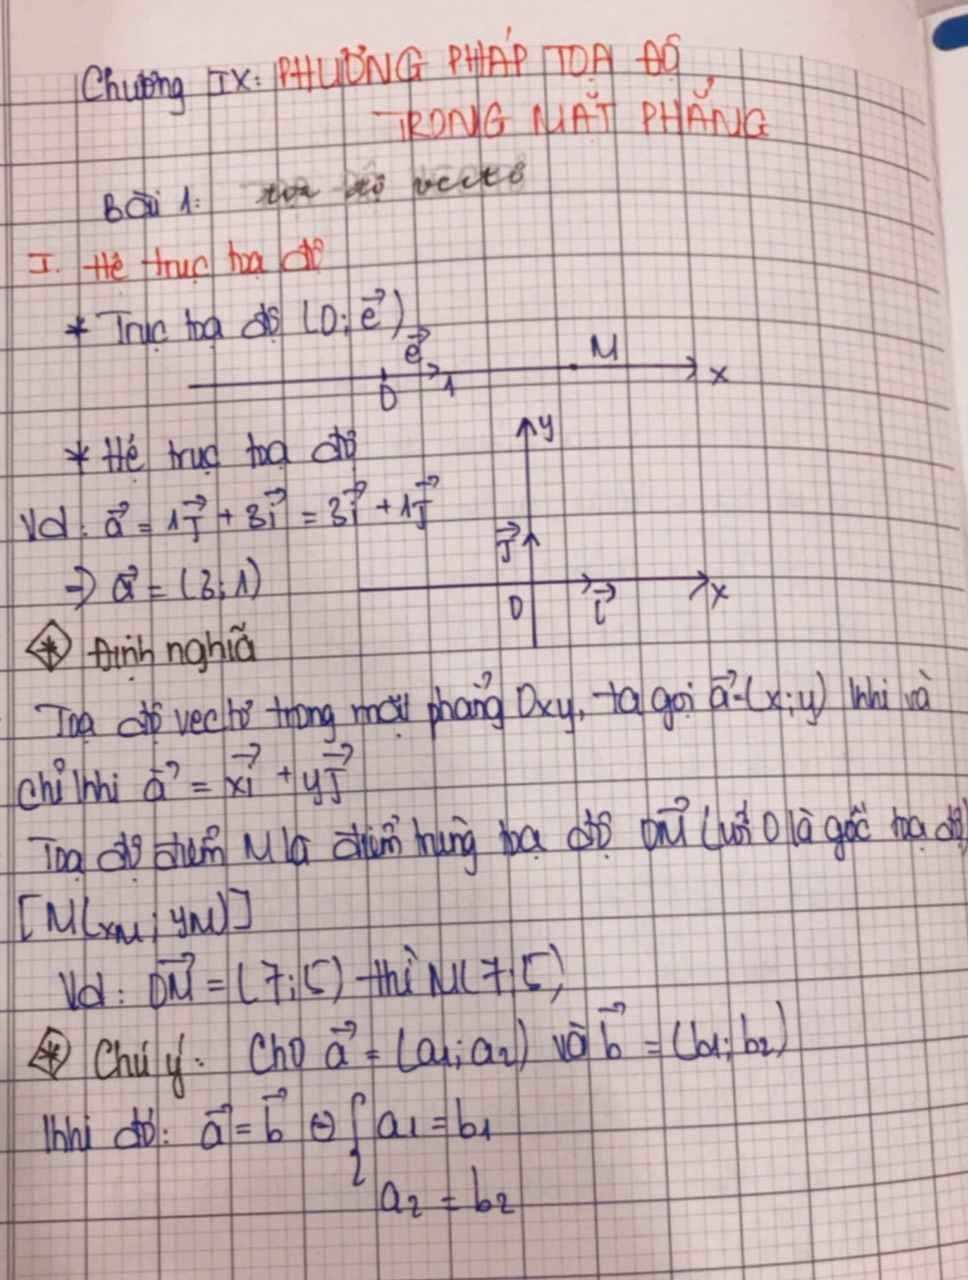 Chương IX: PHƯƠNG PHÁP TOẠ ĐỘ
TRONG MẶT PHẲNG
Bài 1: toạ độ vectơ
I. Hệ trục toạ độ
* Trục toạ độ (O; e⃗)
e⃗ M
O 1 x
* Hệ trục toạ độ
y
Vd: a⃗ = 1j⃗ + 3i⃗ = 3i⃗ + 1j⃗
j⃗
⇒ a⃗ = (3; 1)
O i⃗ x
* Định nghĩa
Toạ độ vectơ trong mặt phẳng Oxy, ta gọi a⃗ = (x; y) khi và
chỉ khi a⃗ = xi⃗ + yj⃗
Toạ độ điểm M là điểm trùng toạ độ OM⃗ (với O là gốc toạ độ)
[M(xM; yM)]
Vd: OM⃗ = (7; 5) thì M(7; 5)
* Chú ý: Cho a⃗ = (a1; a2) và b⃗ = (b1; b2)
Khi đó: a⃗ = b⃗ ⇔ { a1 = b1
a2 = b2